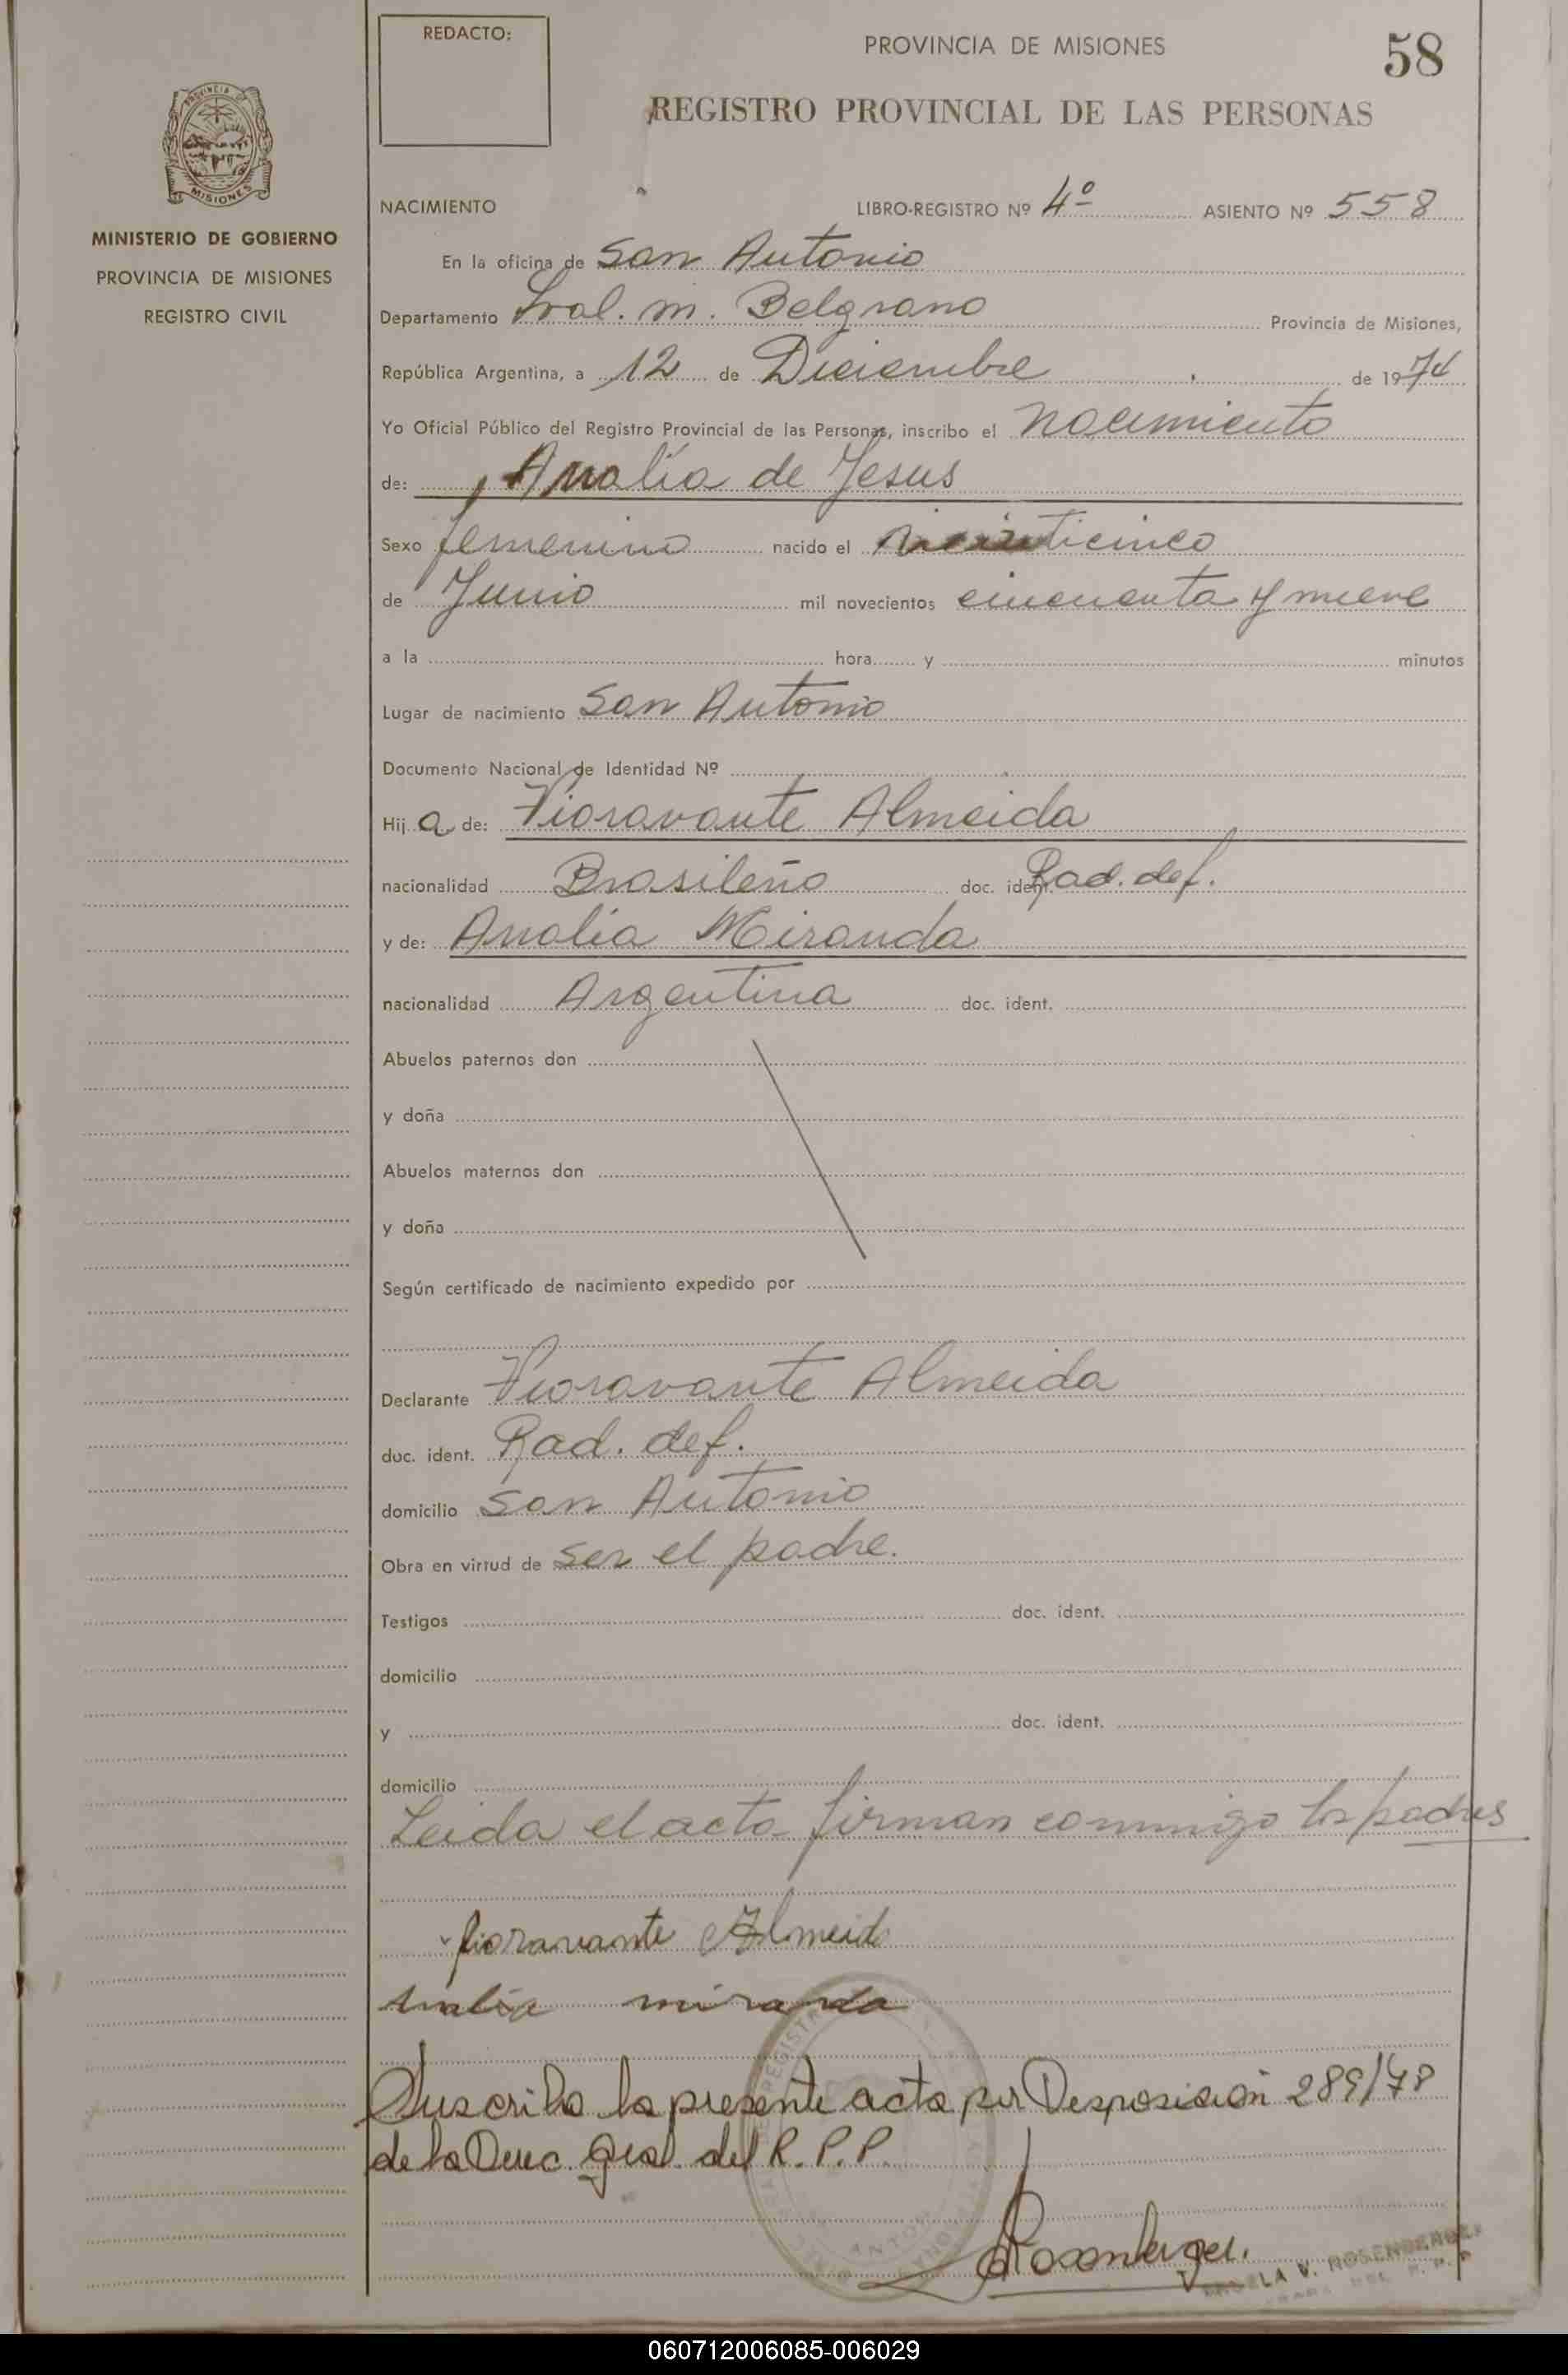 REDACTO:
PROVINCIA DE MISIONES
58
REGISTRO PROVINCIAL DE LAS PERSONAS
PROVINCIA DE
MISIONES
MINISTERIO DE GOBIERNO
PROVINCIA DE MISIONES
REGISTRO CIVIL
NACIMIENTO LIBRO-REGISTRO Nº 4º ASIENTO Nº 558
En la oficina de San Antonio
Departamento Gral. M. Belgrano Provincia de Misiones,
República Argentina, a 12 de Diciembre de 1974
Yo Oficial Público del Registro Provincial de las Personas, inscribo el Nacimiento
de: Analía de Jesus
Sexo femenino nacido el veinticinco
de Junio mil novecientos cincuenta y nueve
a la hora y minutos
Lugar de nacimiento San Antonio
Documento Nacional de Identidad Nº
Hij a de: Fioravante Almeida
nacionalidad Brasileño doc. ident. Rad. def.
y de: Analía Miranda
nacionalidad Argentina doc. ident.
Abuelos paternos don
y doña
Abuelos maternos don
y doña
Según certificado de nacimiento expedido por
Declarante Fioravante Almeida
doc. ident. Rad. def.
domicilio San Antonio
Obra en virtud de ser el padre.
Testigos doc. ident.
domicilio
y doc. ident.
domicilio
Leida el acta firman conmigo los padres
fioravante Almeida
Analia miranda
Suscribo la presente acta por Desposicion 289/78
de la Direc. Gral. del R.P.P.
Rosenberger.
V. ROSENBERGER
060712006085-006029